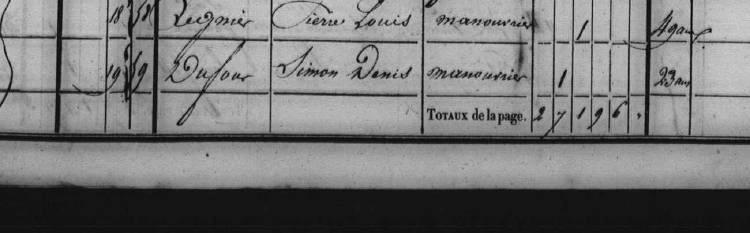 18 58 Regnier Pierre Louis manouvrier 1 49 ans
19 59 Dufour Simon Denis manouvrier 1 23 ans
TOTAUX de la page. 2 7 1 9 6 .